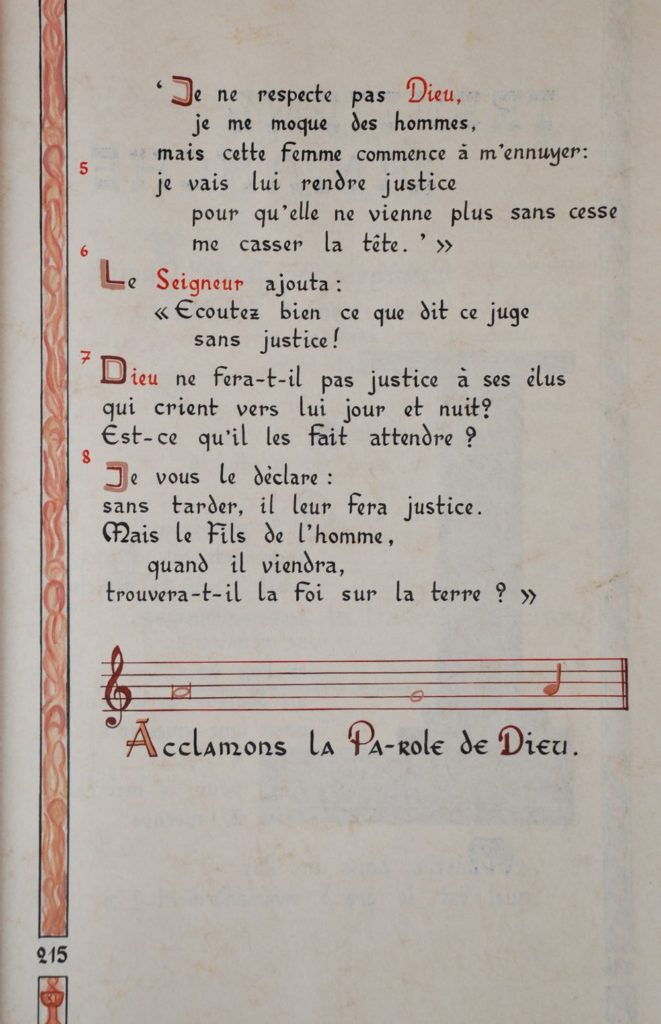 ‘ Je ne respecte pas Dieu,
je me moque des hommes,
mais cette femme commence à m'ennuyer:
5
je vais lui rendre justice
pour qu'elle ne vienne plus sans cesse
me casser la tête. ’ »
6
Le Seigneur ajouta :
« Ecoutez bien ce que dit ce juge
sans justice!
7
Dieu ne fera-t-il pas justice à ses élus
qui crient vers lui jour et nuit?
Est-ce qu'il les fait attendre ?
8
Je vous le déclare :
sans tarder, il leur fera justice.
Mais le Fils de l'homme,
quand il viendra,
trouvera-t-il la foi sur la terre ? »
Acclamons la Pa-role de Dieu.
215